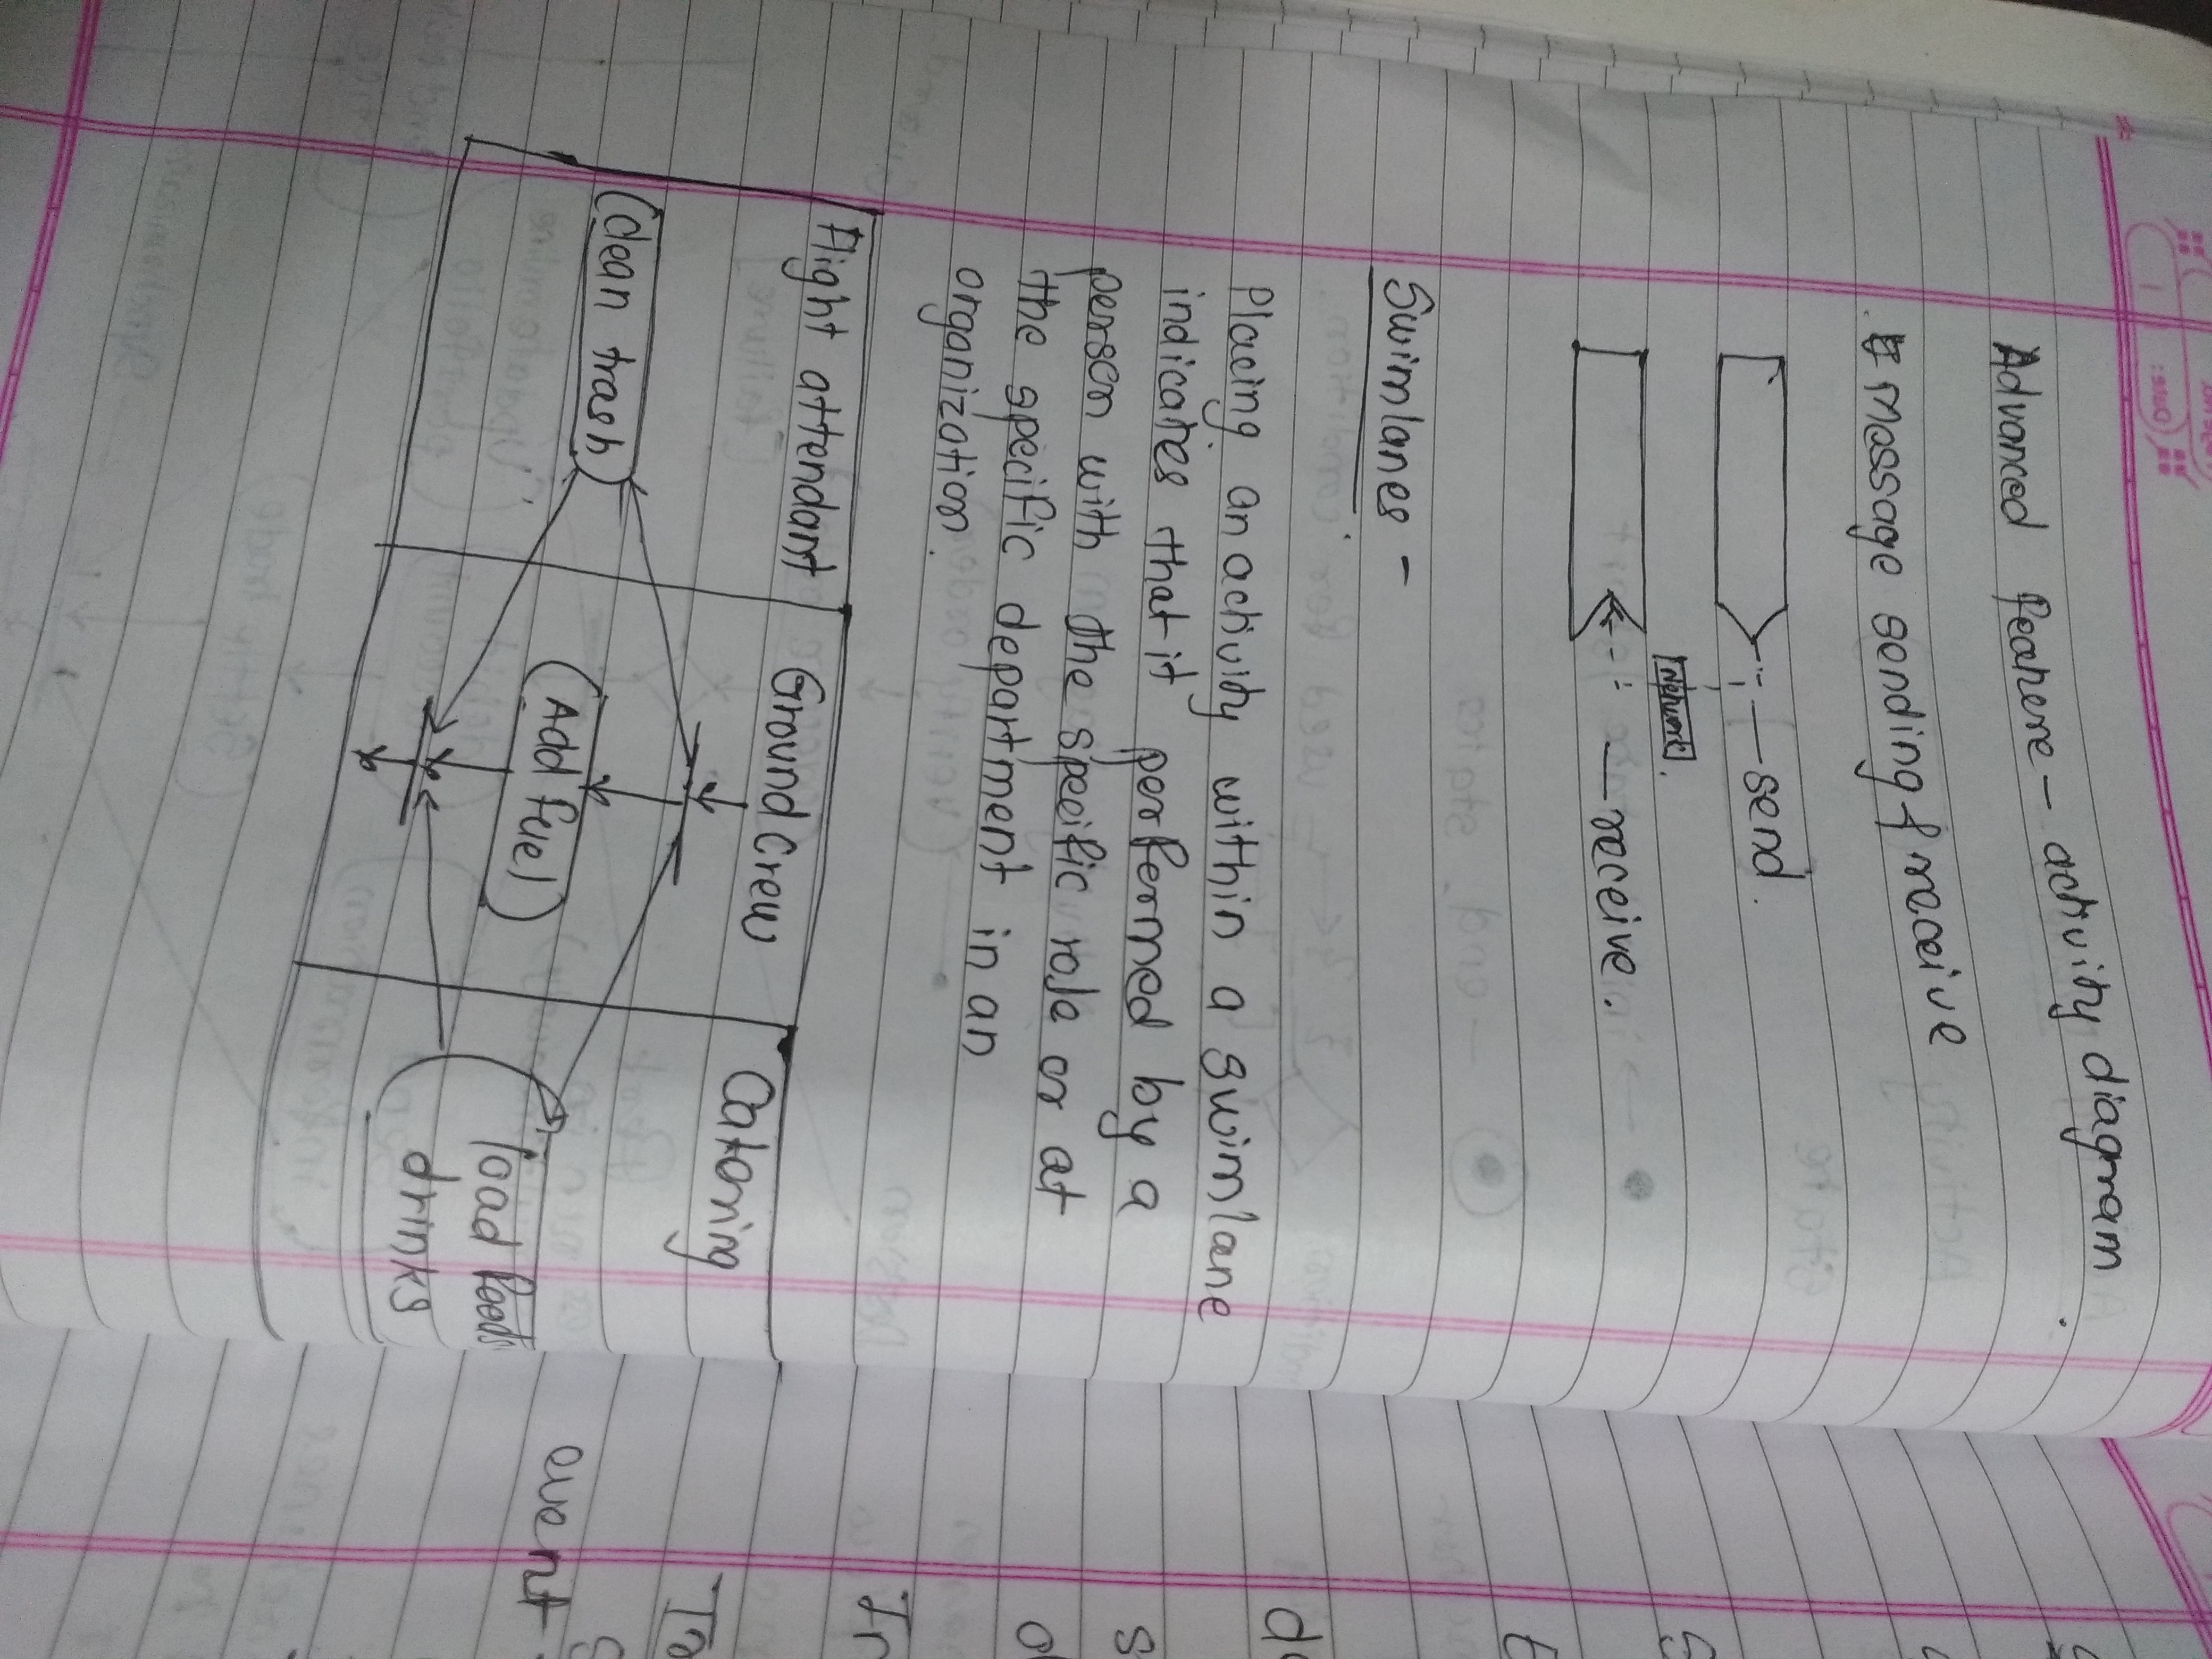 Advanced feature - activity diagram.
Message sending & receive
— send.
Network.
— receive.
Swimlanes -
Placing an activity within a swimlane
indicates that it performed by a
person with the specific role or at
the specific department in an
organization.
Flight attendant
Ground Crew
Catering
clean trash
Add fuel
load foods
drinks
event